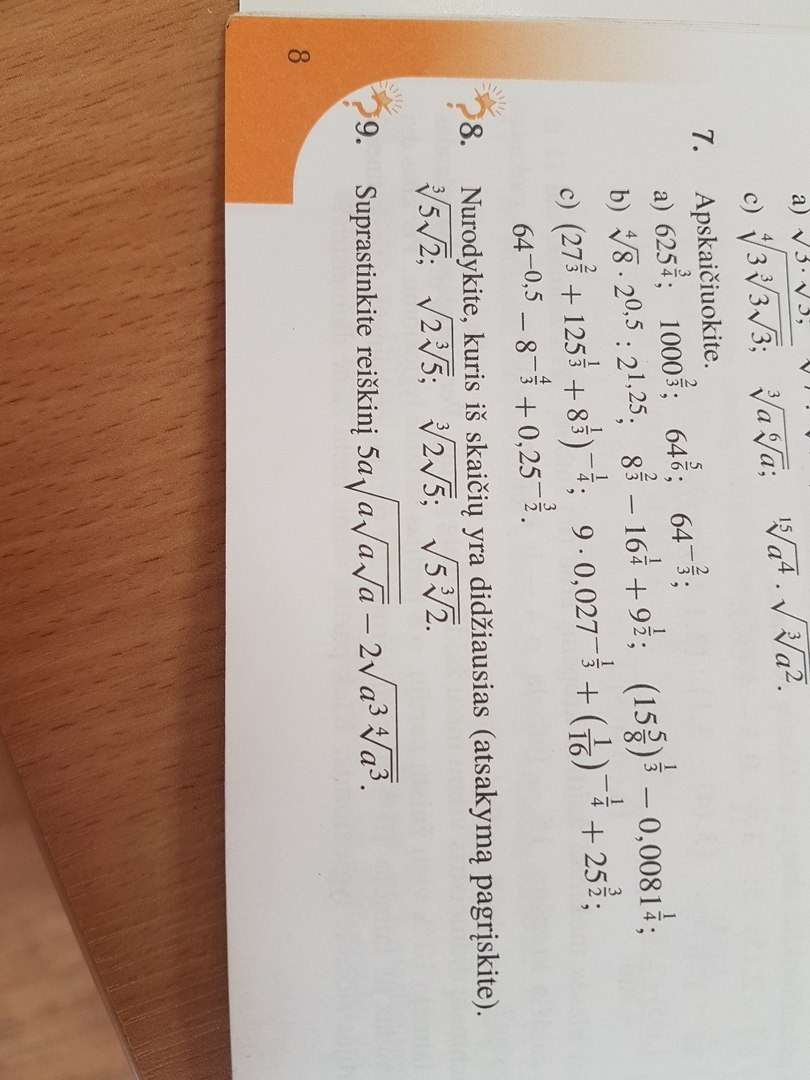 a) √3 · √3;
c) ⁴√(3 ³√(3√3)); ³√(a ⁶√a); ¹⁵√(a⁴) · √(³√(a²)).
7. Apskaičiuokite.
a) 625^(3/4); 1000^(2/3); 64^(5/6); 64^(−2/3);
b) ⁴√8 · 2^(0,5) : 2^(1,25); 8^(2/3) − 16^(1/4) + 9^(1/2); (15 5/8)^(1/3) − 0,0081^(1/4);
c) (27^(2/3) + 125^(1/3) + 8^(1/3))^(−1/4); 9 · 0,027^(−1/3) + (1/16)^(−1/4) + 25^(3/2);
64^(−0,5) − 8^(−4/3) + 0,25^(−3/2).
8. Nurodykite, kuris iš skaičių yra didžiausias (atsakymą pagrįskite).
³√(5√2); √(2 ³√5); ³√(2√5); √(5 ³√2).
9. Suprastinkite reiškinį 5a√(a√(a√a)) − 2√(a³ ⁴√(a³)).
8